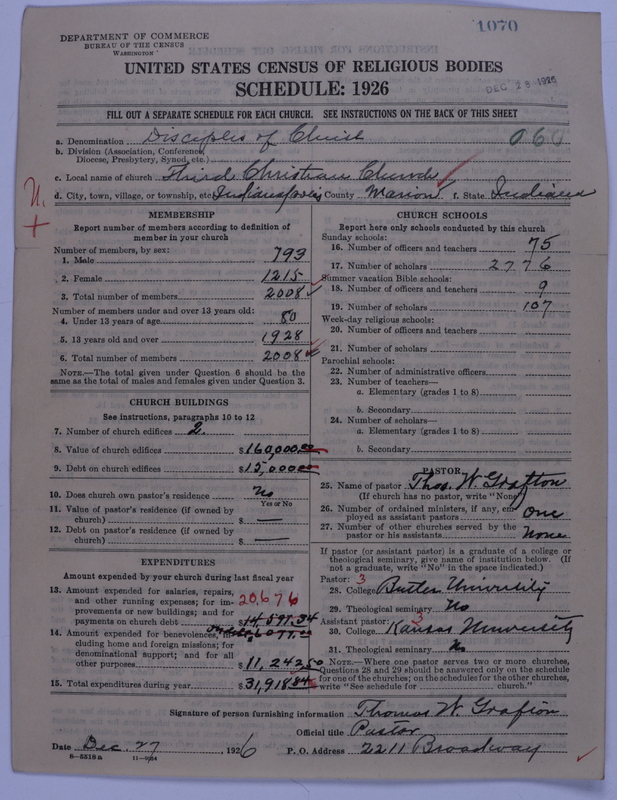 1070
DEPARTMENT OF COMMERCE
BUREAU OF THE CENSUS
WASHINGTON
UNITED STATES CENSUS OF RELIGIOUS BODIES
SCHEDULE: 1926
DEC 28 1926
FILL OUT A SEPARATE SCHEDULE FOR EACH CHURCH. SEE INSTRUCTIONS ON THE BACK OF THIS SHEET
a. Denomination Disciples of Christ 060
b. Division (Association, Conference,
Diocese, Presbytery, Synod, etc.)
c. Local name of church Third Christian Church
d. City, town, village, or township, etc. Indianapolis County Marion f. State Indiana
MEMBERSHIP
Report number of members according to definition of
member in your church
Number of members, by sex:
1. Male 793
2. Female 1215
3. Total number of members 2008
Number of members under and over 13 years old:
4. Under 13 years of age 80
5. 13 years old and over 1928
6. Total number of members 2008
NOTE.—The total given under Question 6 should be the
same as the total of males and females given under Question 3.
CHURCH BUILDINGS
See instructions, paragraphs 10 to 12
7. Number of church edifices 2
8. Value of church edifices $160,000.00
9. Debt on church edifices $15,000.00
10. Does church own pastor's residence No
Yes or No
11. Value of pastor's residence (if owned by
church) $ —
12. Debt on pastor's residence (if owned by
church) $ —
EXPENDITURES
Amount expended by your church during last fiscal year
13. Amount expended for salaries, repairs,
and other running expenses; for im- 20676
provements or new buildings; and for
payments on church debt $14,599.34
14. Amount expended for benevolences, in-
cluding home and foreign missions; for
denominational support; and for all
other purposes $11,242.50
15. Total expenditures during year $31,918.84
CHURCH SCHOOLS
Report here only schools conducted by this church
Sunday schools:
16. Number of officers and teachers 75
17. Number of scholars 2776
Summer vacation Bible schools:
18. Number of officers and teachers 9
19. Number of scholars 107
Week-day religious schools:
20. Number of officers and teachers
21. Number of scholars
Parochial schools:
22. Number of administrative officers
23. Number of teachers—
a. Elementary (grades 1 to 8)
b. Secondary
24. Number of scholars—
a. Elementary (grades 1 to 8)
b. Secondary
PASTOR
25. Name of pastor Thos. W. Grafton
(If church has no pastor, write "None")
26. Number of ordained ministers, if any, em-
ployed as assistant pastors One
27. Number of other churches served by the
pastor or his assistants None
If pastor (or assistant pastor) is a graduate of a college or
theological seminary, give name of institution below. (If
not a graduate, write "No" in the space indicated.)
Pastor: 3
28. College Butler University
29. Theological seminary No
Assistant pastor: 3
30. College Kansas University
31. Theological seminary No
NOTE.—Where one pastor serves two or more churches,
Questions 28 and 29 should be answered only on the schedule
for one of the churches; on the schedules for the other churches,
write "See schedule for church."
Signature of person furnishing information Thomas W. Grafton
Official title Pastor
Date Dec. 27 1926 P. O. Address 2211 Broadway
8—5518a 11—9154